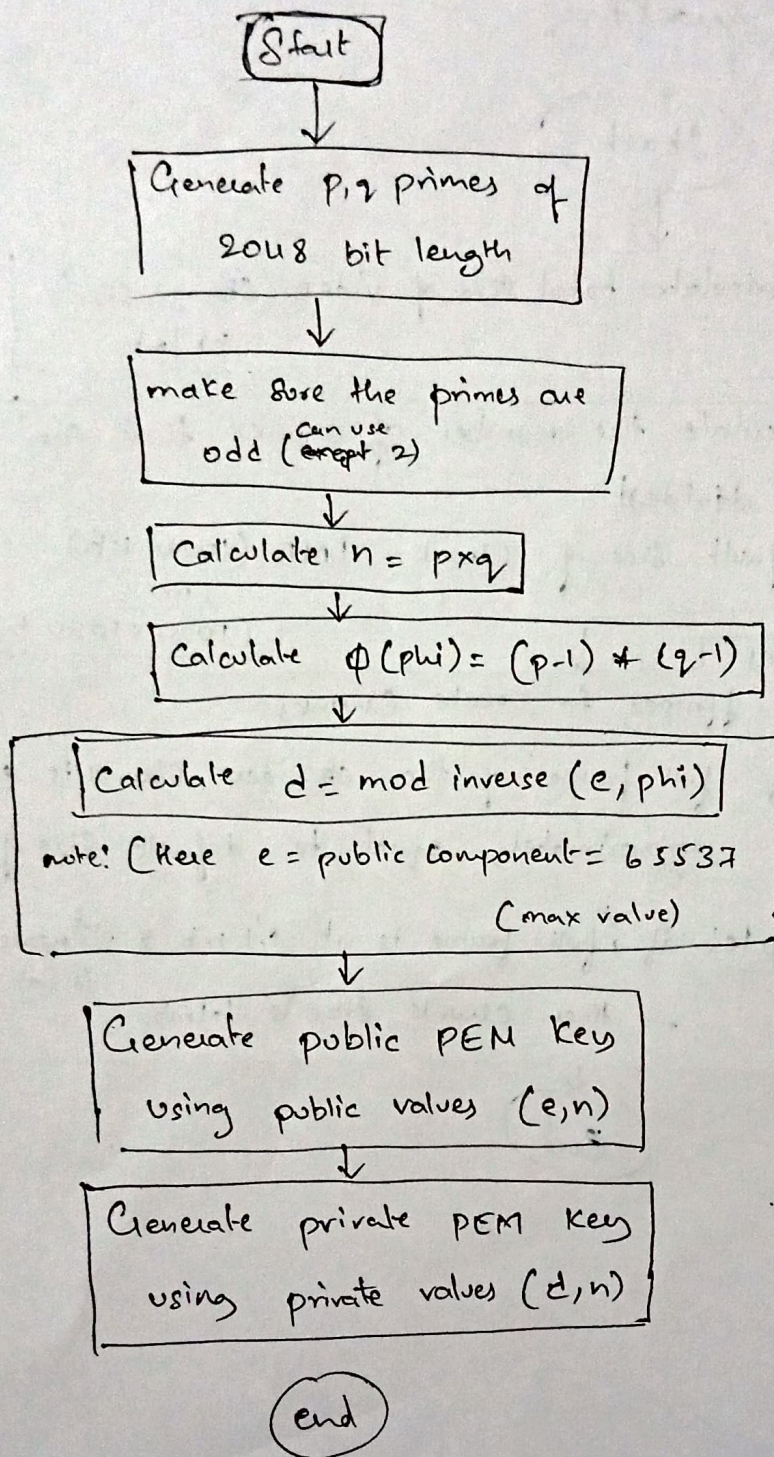 Start
Generate p,q primes of
2048 bit length
make sure the primes are
can use
odd (except, 2)
Calculate n = p×q
Calculate φ (phi) = (p-1) * (q-1)
Calculate d = mod inverse (e, phi)
note: (Here e = public component = 65537
(max value)
Generate public PEM Key
using public values (e,n)
Generate private PEM Key
using private values (d,n)
end